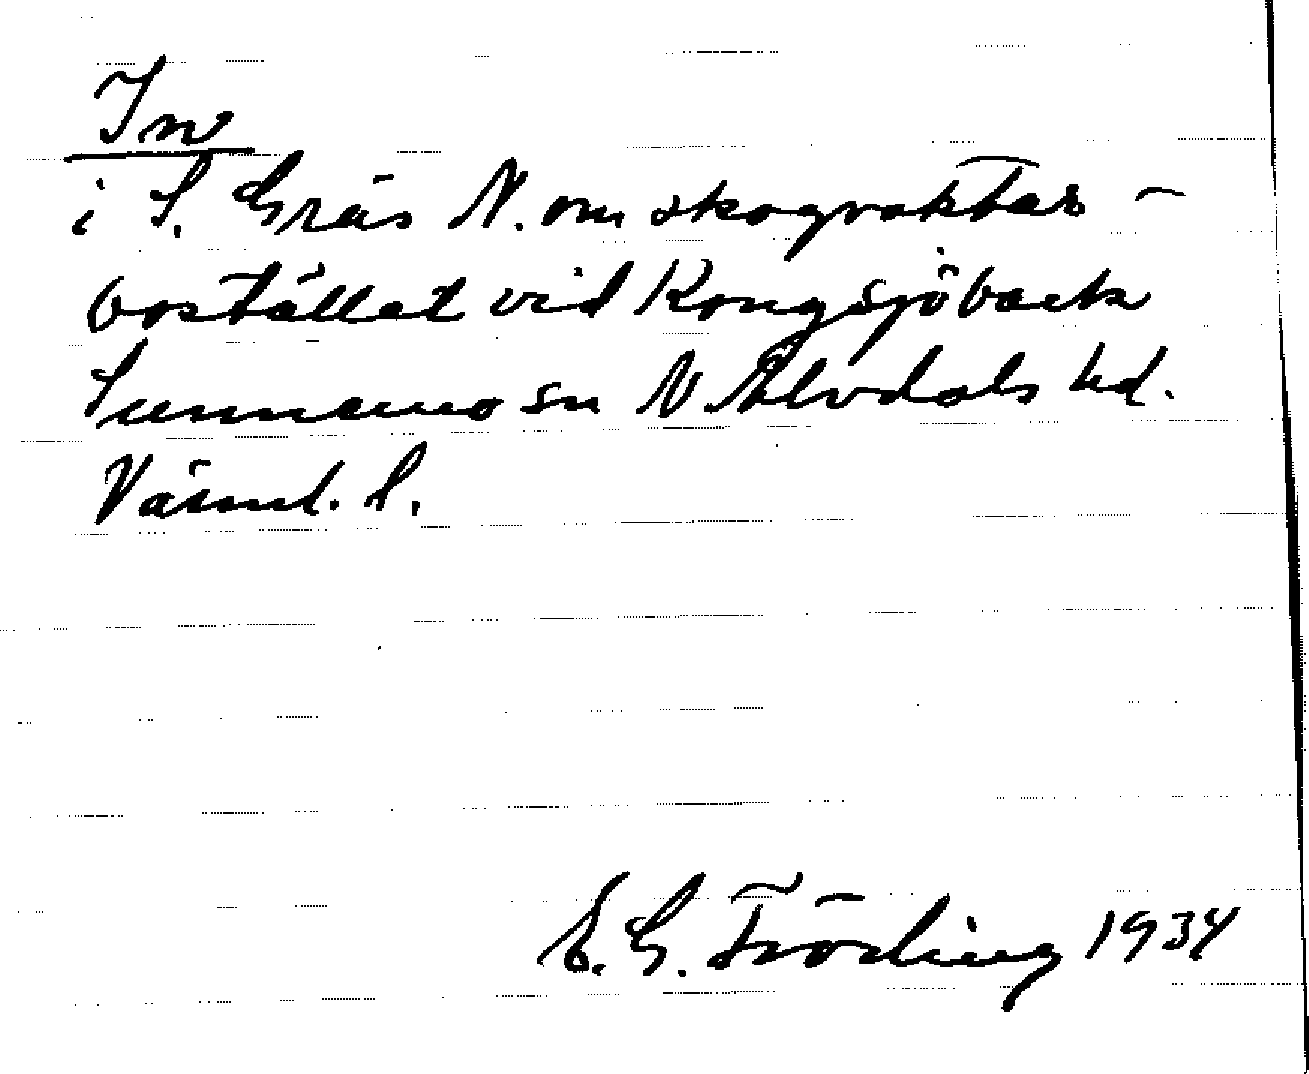 In
i S. Gräs N. om skogvaktar-
bostället vid Kongsjöback
Sunnemo sn N Älvdals hd.
Värml. l.
E. G. Fröding 1934